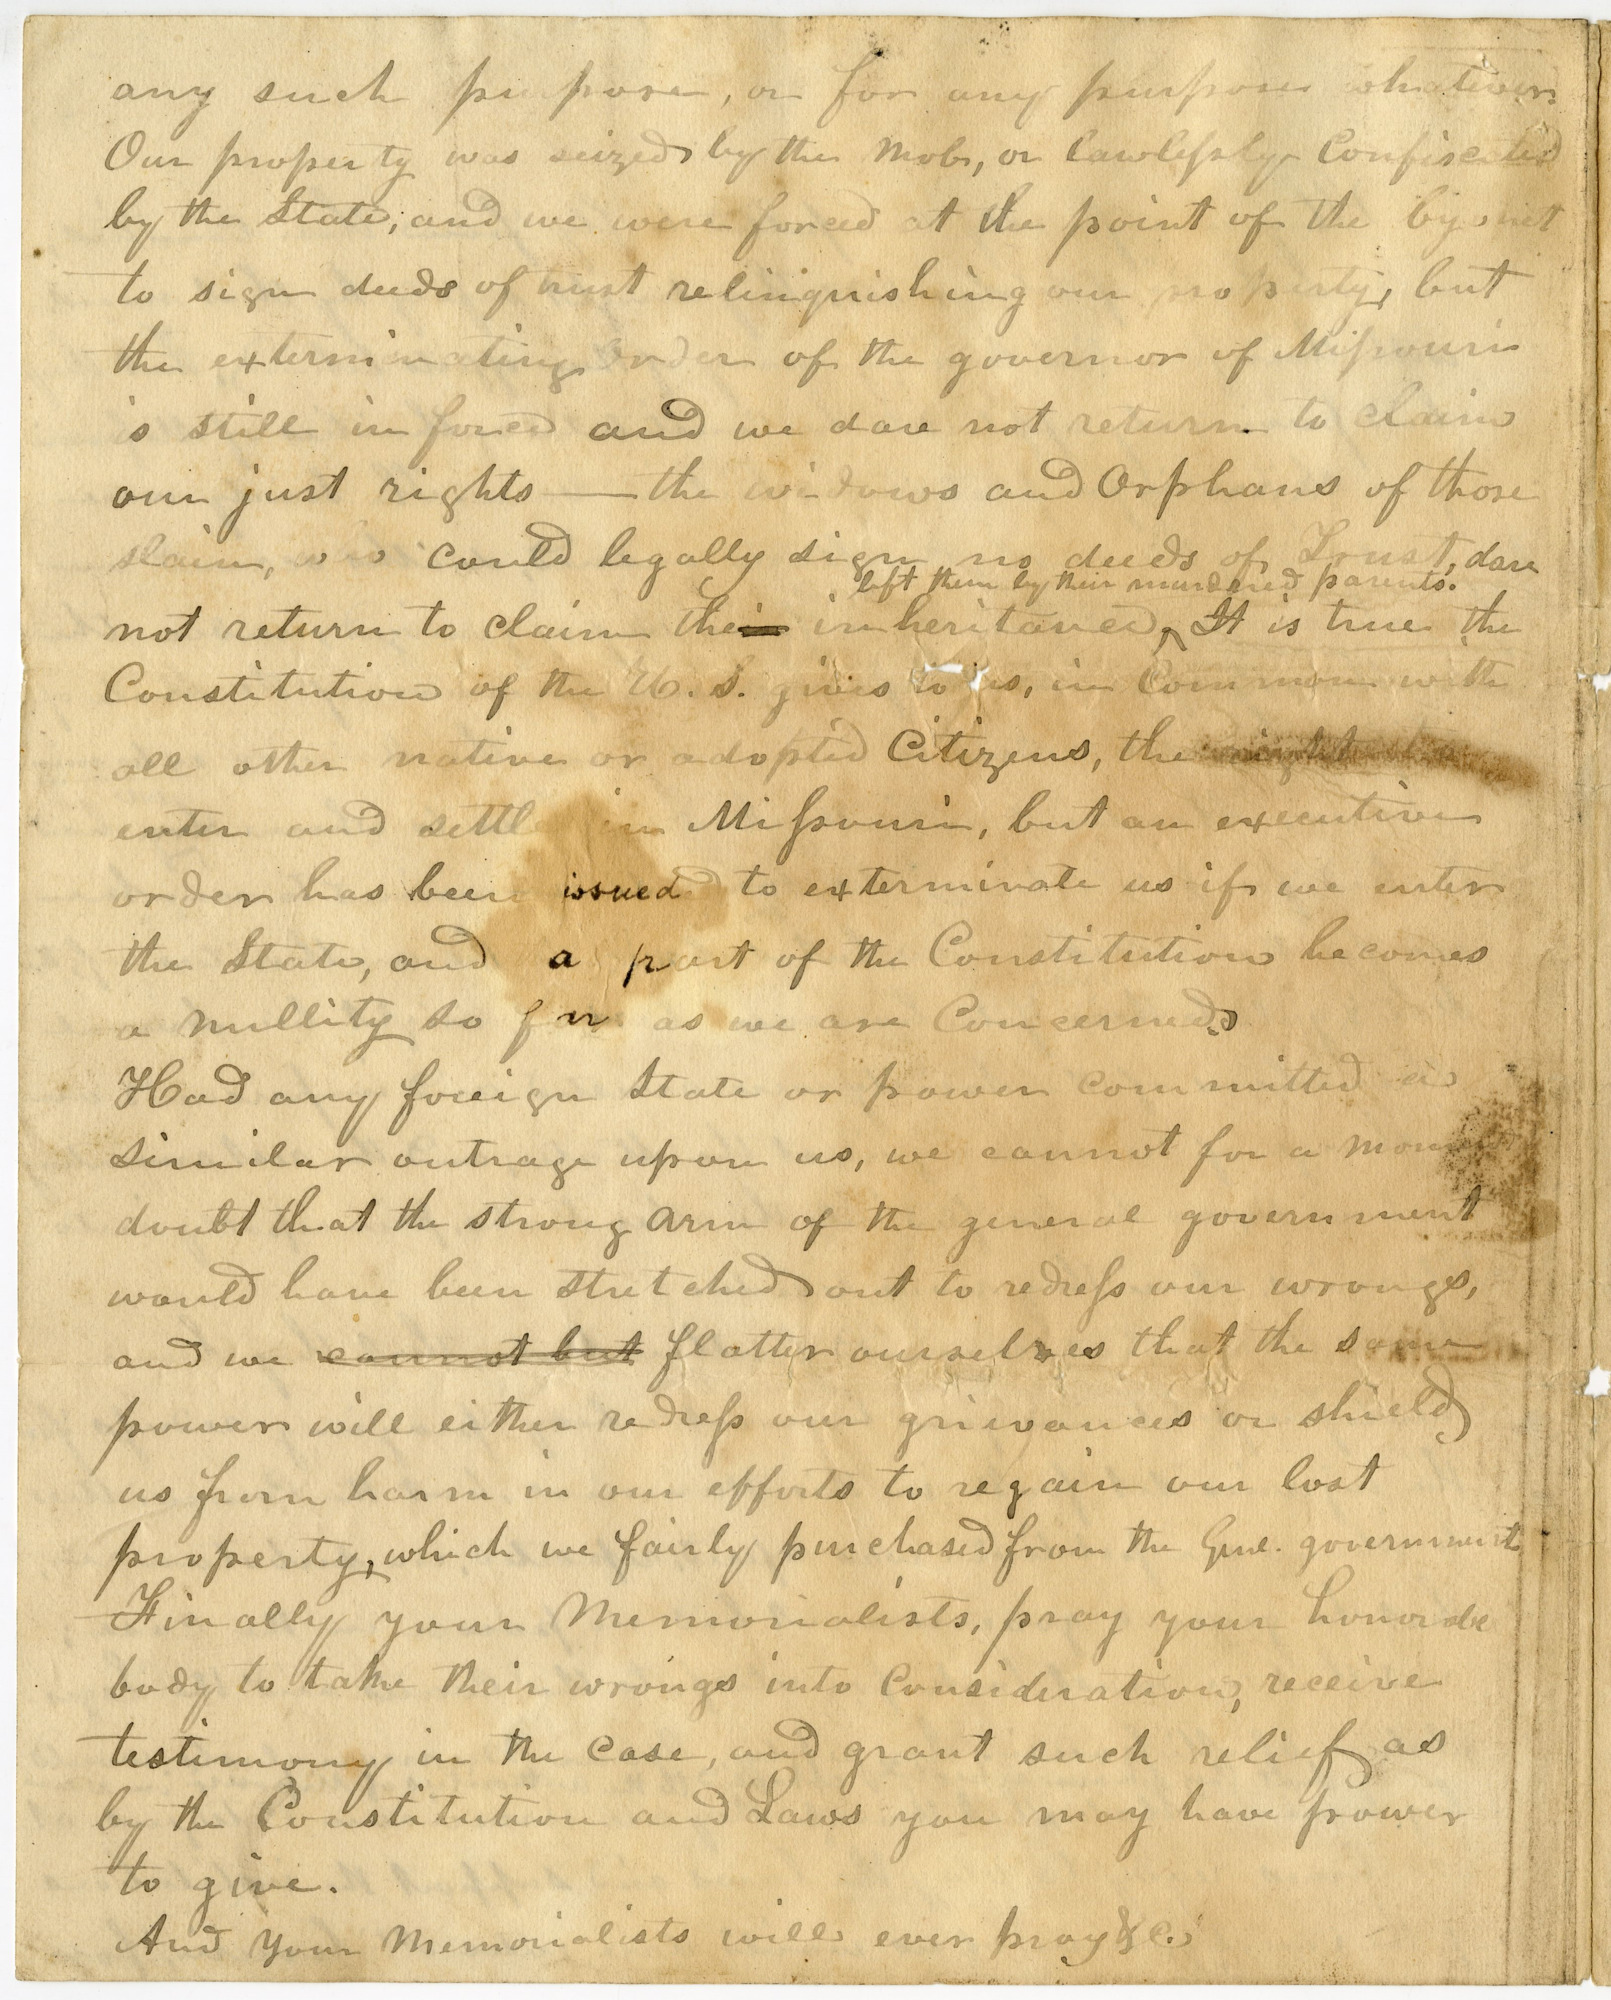 any such purpose, or for any purpose whatever.
Our property was seized by the Mob, or lawlessly Confiscated
by the State; and we were forced at the point of the byonet
to sign deeds of trust relinquishing our property, but
the exterminating Order of the governor of Missouri
is still in force and we dare not return to claim
our just rights — the widows and Orphans of those
slain, who could legally sign no deeds of Trust, dare
left them by their murdered parents.
not return to claim the inheritance, It is true the
Constitution of the U. S. gives to us, in Common with
all other native or adopted Citizens, the right to
enter and settle in Missouri, but an executive
order has been issued to exterminate us if we enter
the State, and a part of the Constitution becomes
a nullity so far as we are Concerned.
Had any foreign State or power committed a
similar outrage upon us, we cannot for a moment
doubt that the strong arm of the general government
would have been stretched out to redress our wrongs,
and we cannot but flatter ourselves that the same
power will either redress our grievances or shield
us from harm in our efforts to regain our lost
property, which we fairly purchased from the Genl. government
Finally your Memorialists, pray your honorable
body to take their wrongs into Consideration, receive
testimony in the case, and grant such relief as
by the Constitution and Laws you may have power
to give.
And your Memorialists will ever pray &c.